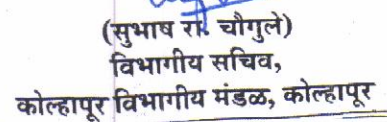 (सुभाष रा. चौगुले)
विभागीय सचिव,
कोल्हापूर विभागीय मंडळ, कोल्हापूर